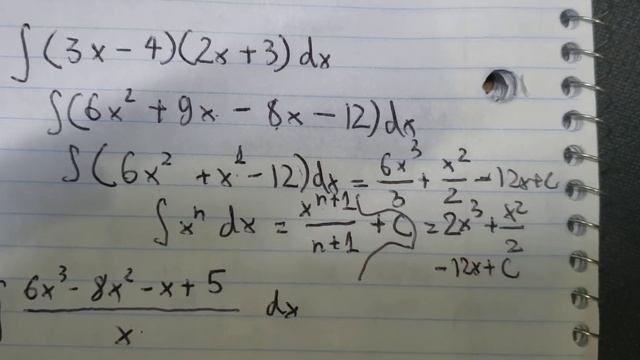 ∫(3x - 4)(2x + 3) dx
∫(6x² + 9x - 8x - 12)dx
∫(6x² + x¹ - 12)dx = 6x³/3 + x²/2 - 12x + C
∫xⁿ dx = xⁿ⁺¹/n+1 + C = 2x³ + x²/2
- 12x + C
∫ 6x³ - 8x² - x + 5 / x dx